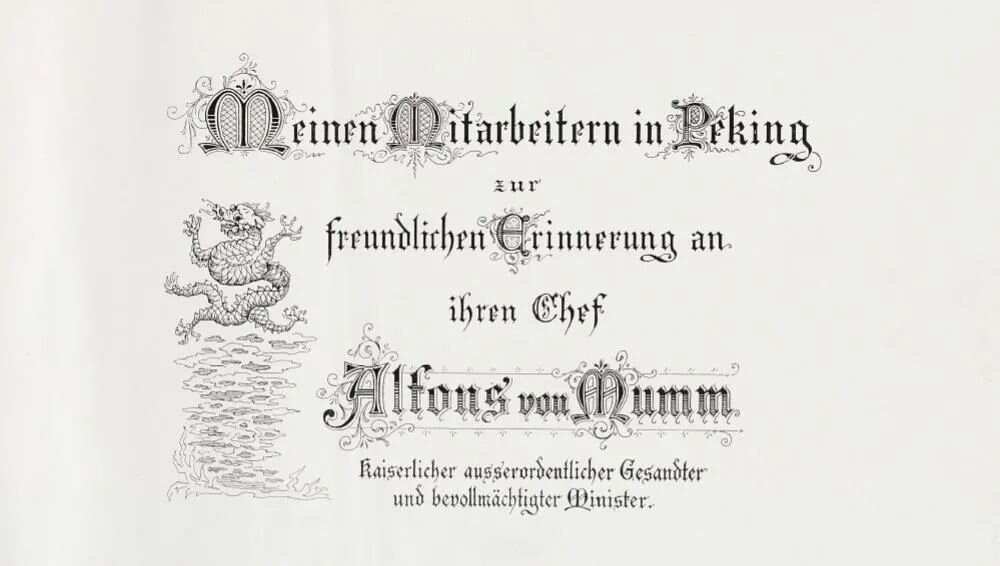 Meinen Mitarbeitern in Peking
zur
freundlichen Erinnerung an
ihren Chef
Alfons von Mumm
Kaiserlicher ausserordentlicher Gesandter
und bevollmächtigter Minister.